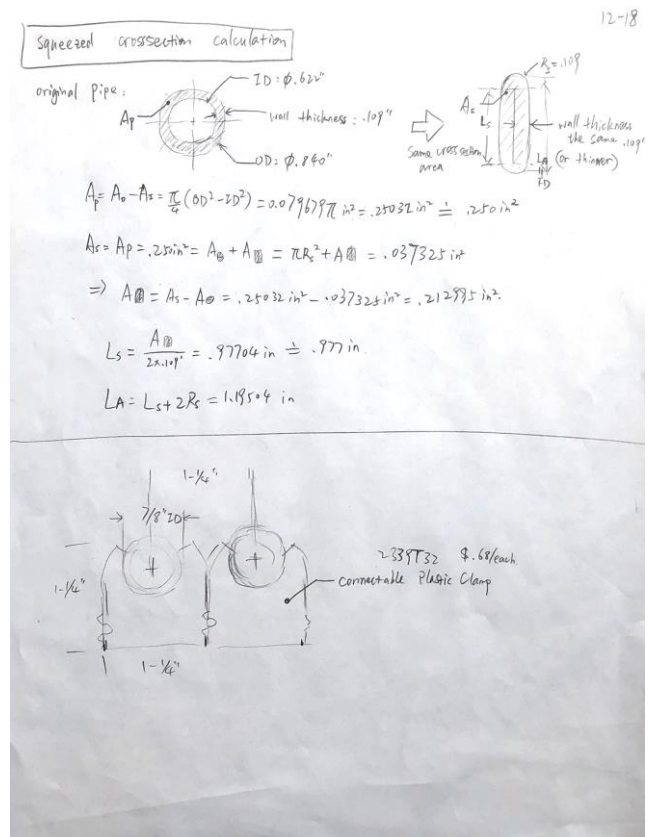 12-18
Squeezed crosssection calculation
original Pipe:
ID: φ.622"
Ap
wall thickness: .109"
OD: φ.840"
Same cross section
area
Rs=.109
As
Ls
wall thickness
the same .109"
(or thinner)
LA
Ap = Ao - AI = π/4 (OD² - ID²) = 0.079679π in² = .25032 in² ≐ .250 in²
As = Ap = .250in² = A⊖ + A▥ = πRs² + A▥ = .037325 in²
=> A▥ = As - A⊖ = .25032 in² - .037325 in² = .212995 in².
Ls = A▥ / 2x.109" = .97704 in ≐ .977 in
LA = Ls + 2Rs = 1.19504 in
1-1/4"
7/8" ID
1-1/4"
2339T32 $.68/each
Connectable Plastic Clamp
1-1/4"